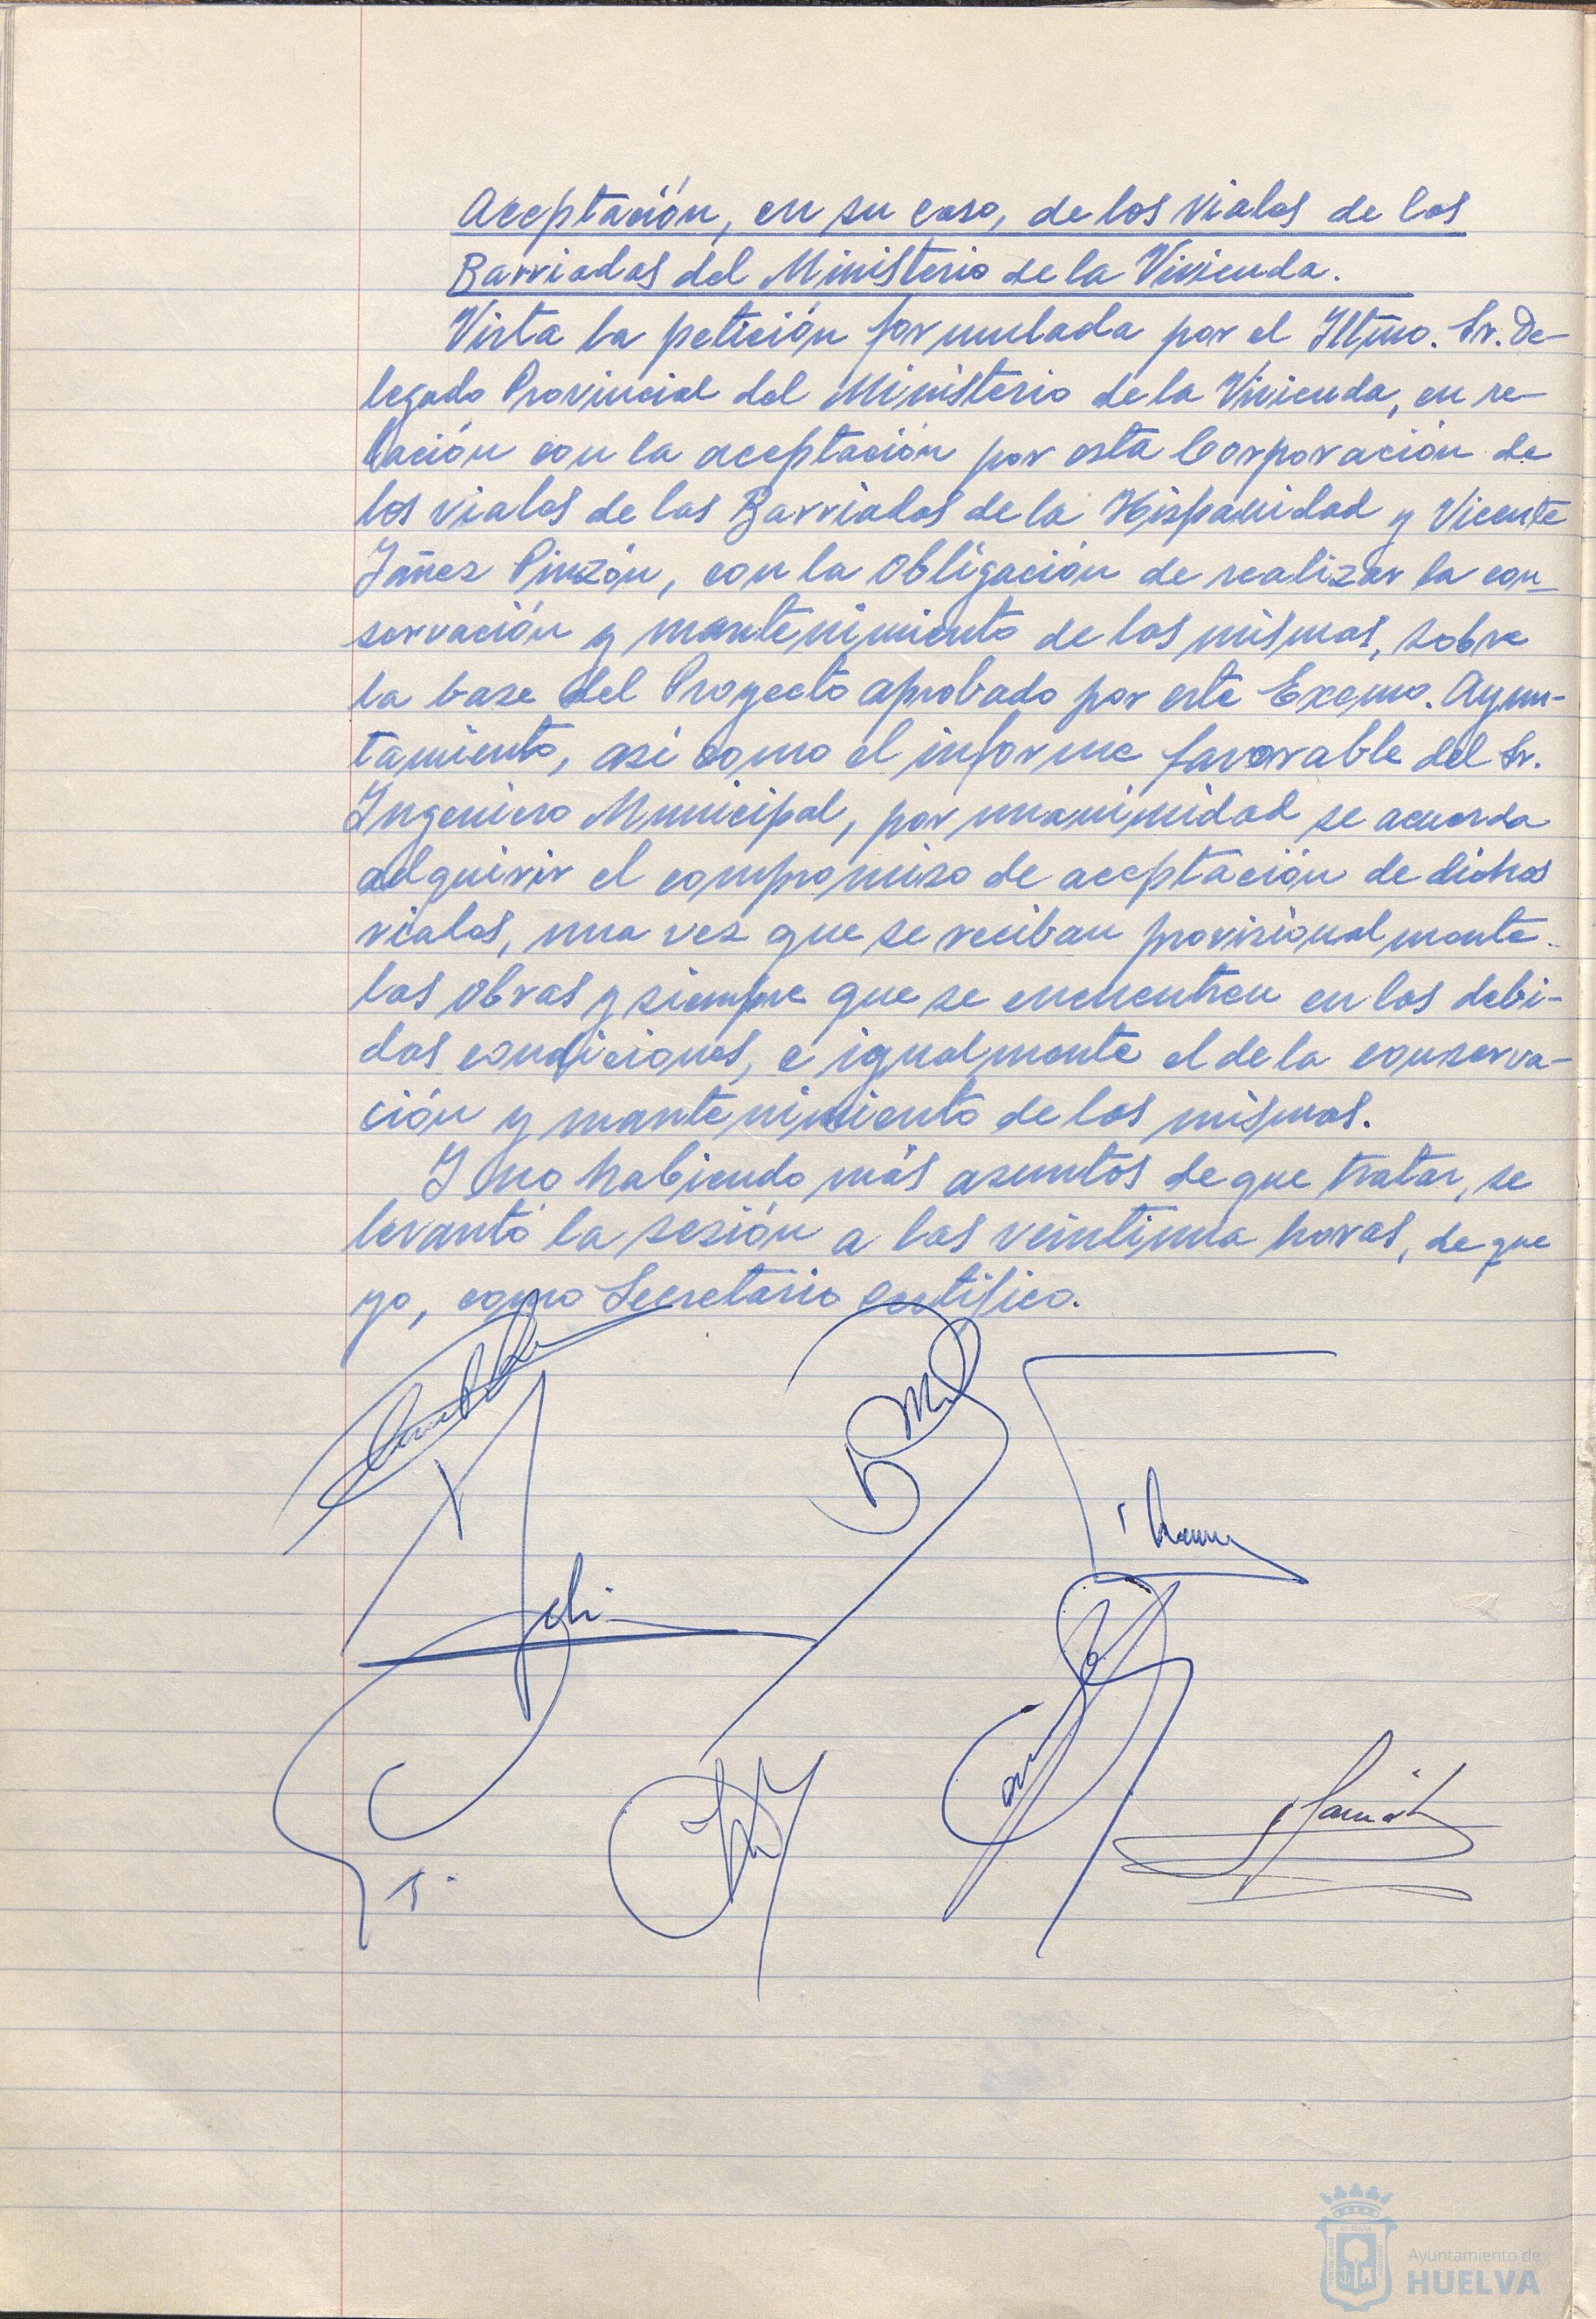 Aceptación, en su caso, de los viales de las
Barriadas del Ministerio de la Vivienda.
Vista la petición formulada por el Iltmo. Sr. De-
legado Provincial del Ministerio de la Vivienda, en re-
lación con la aceptación por esta Corporación de
los viales de las Barriadas de la Hispanidad y Vicente
Yáñez Pinzón, con la obligación de realizar la con-
servación y mantenimiento de los mismos, sobre
la base del Proyecto aprobado por este Excmo. Ayun-
tamiento, así como el informe favorable del Sr.
Ingeniero Municipal, por unanimidad se acuerda
adquirir el compromiso de aceptación de dichos
viales, una vez que se reciban provisionalmente
las obras y siempre que se encuentren en las debi-
das condiciones, e igualmente el de la conserva-
ción y mantenimiento de los mismos.
Y no habiendo más asuntos de que tratar, se
levantó la sesión a las veintiuna horas, de que
yo, como Secretario certifico.
Ayuntamiento de
HUELVA